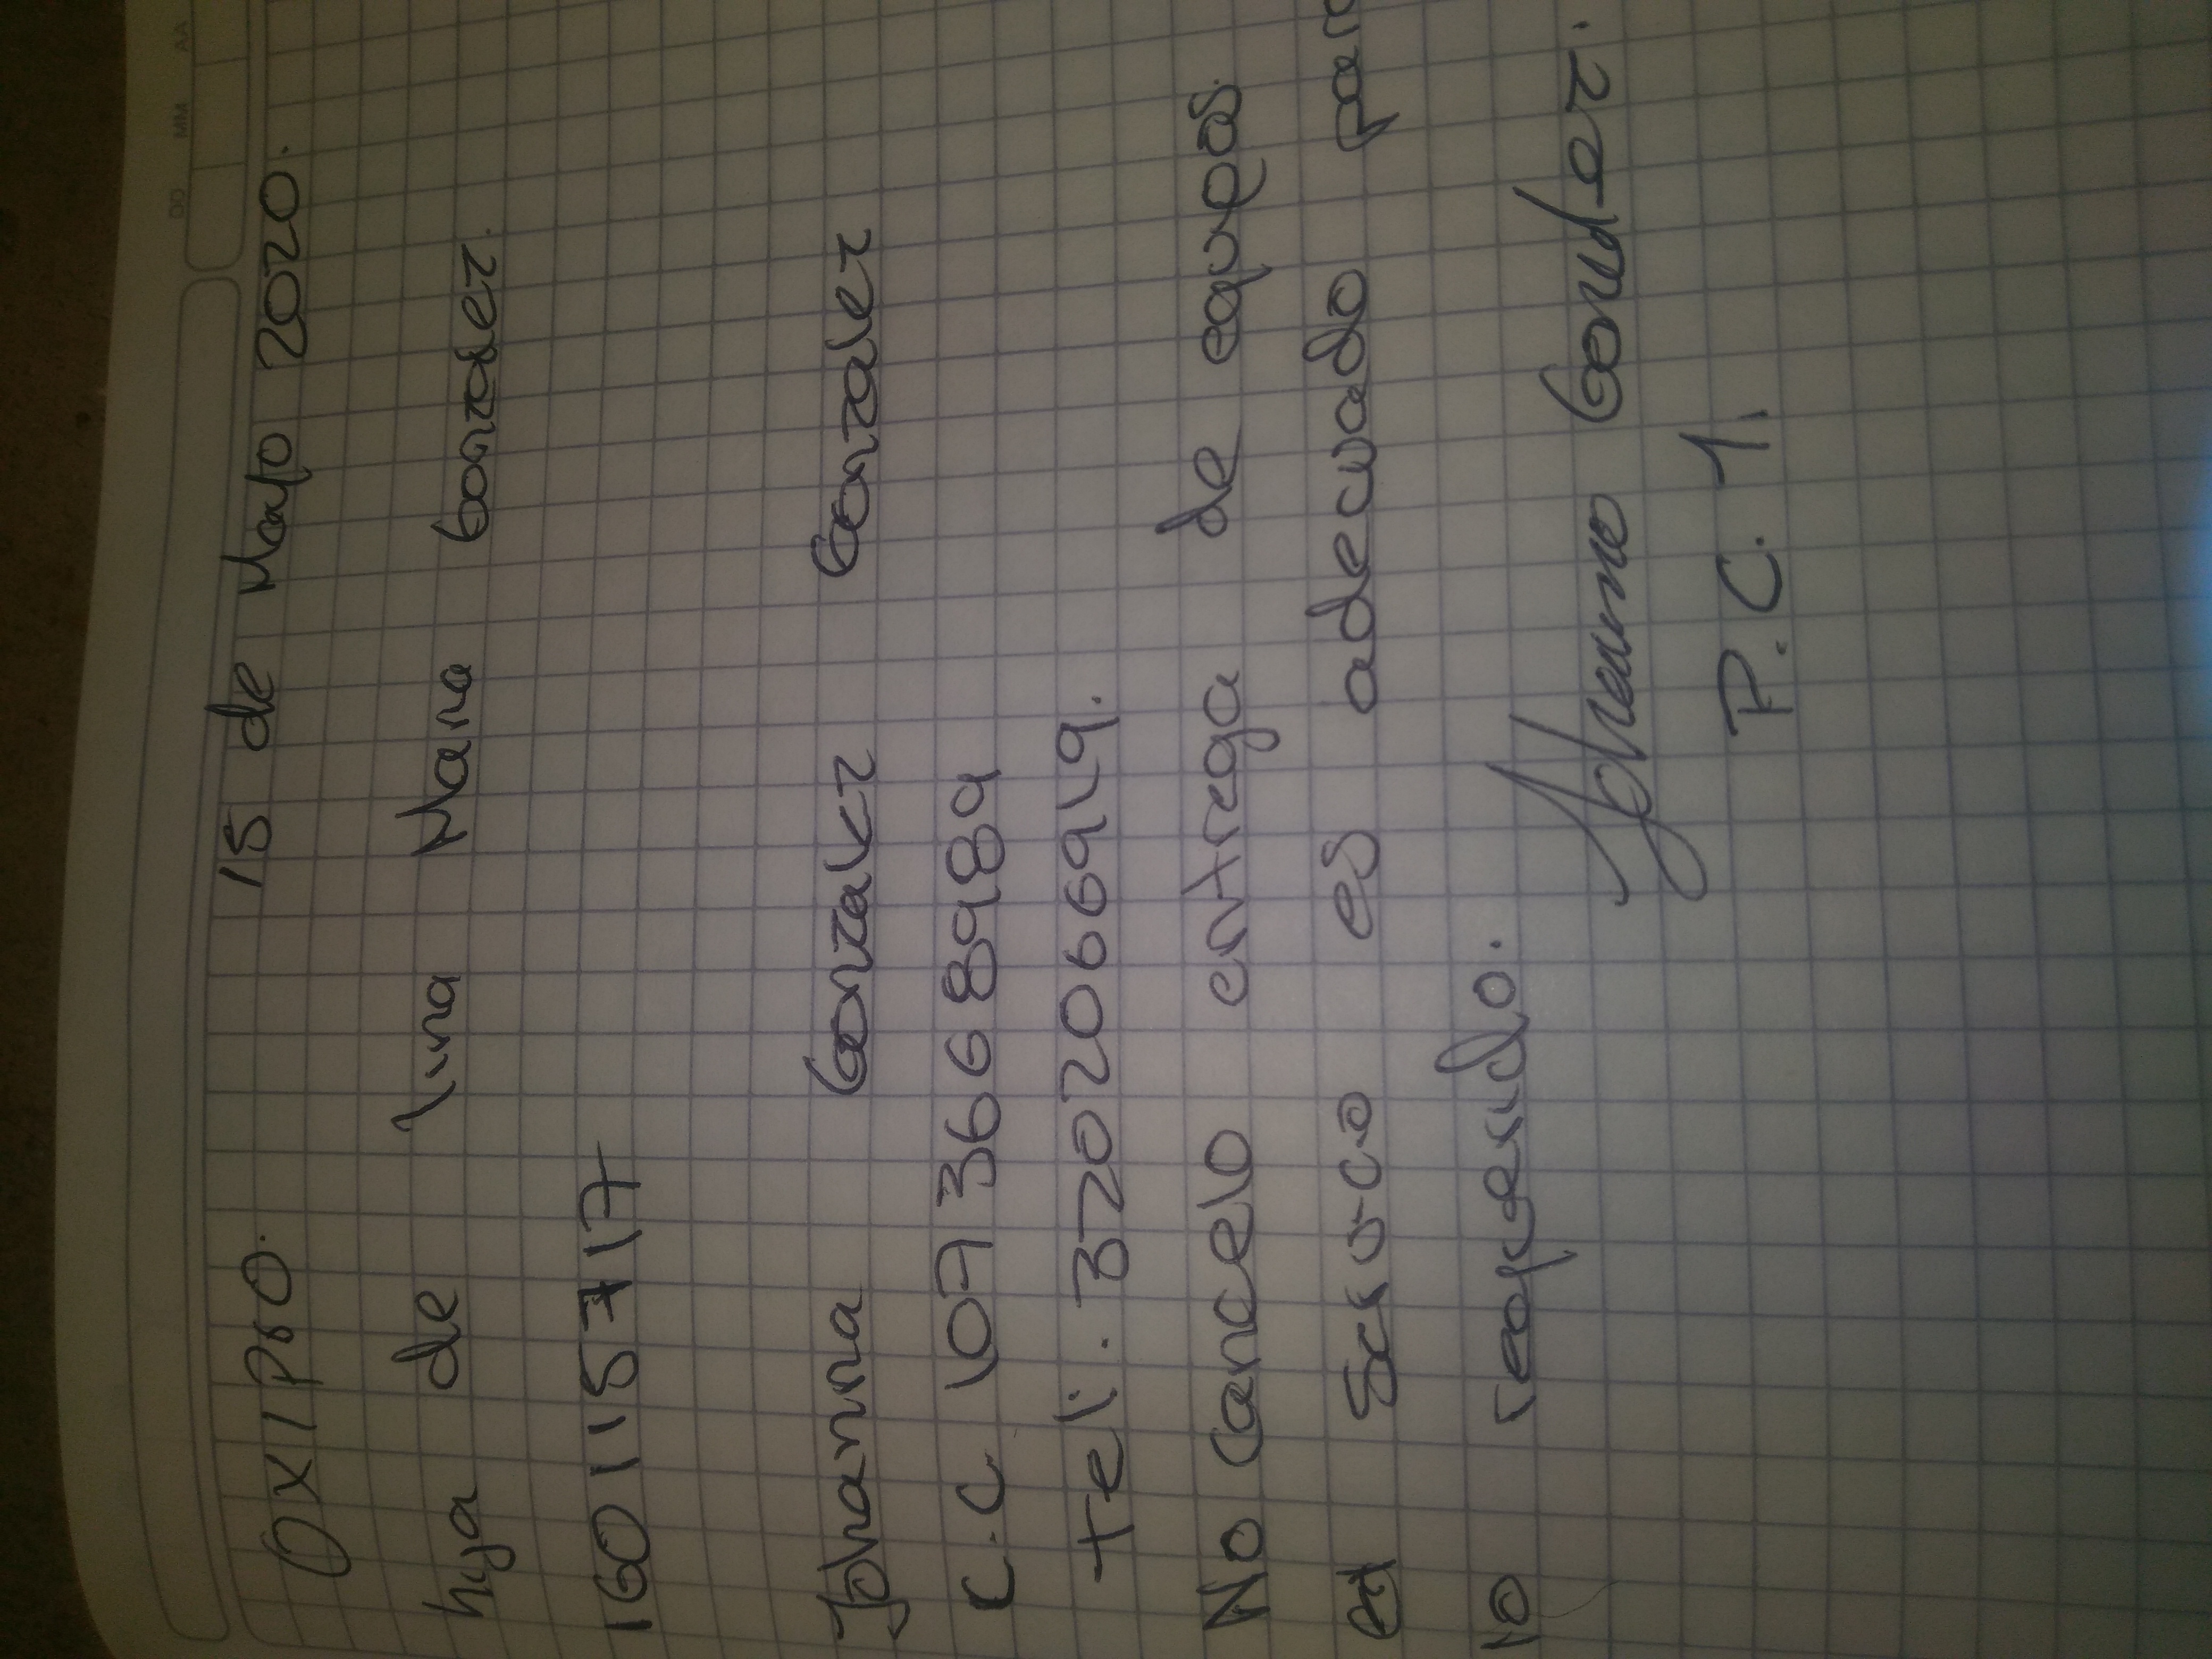 OXIPRO. 15 de Mayo 2020.
hija de lina Maria Gonzalez.
1601157117
Johanna Gonzalez Gonzalez
C.C 1073668989
tel: 3202066949.
No cancelo entrega de equipos.
el servicio es adecuado para
lo requerido.
Johanna Gonzalez.
P.C. 1.
DD MM AA